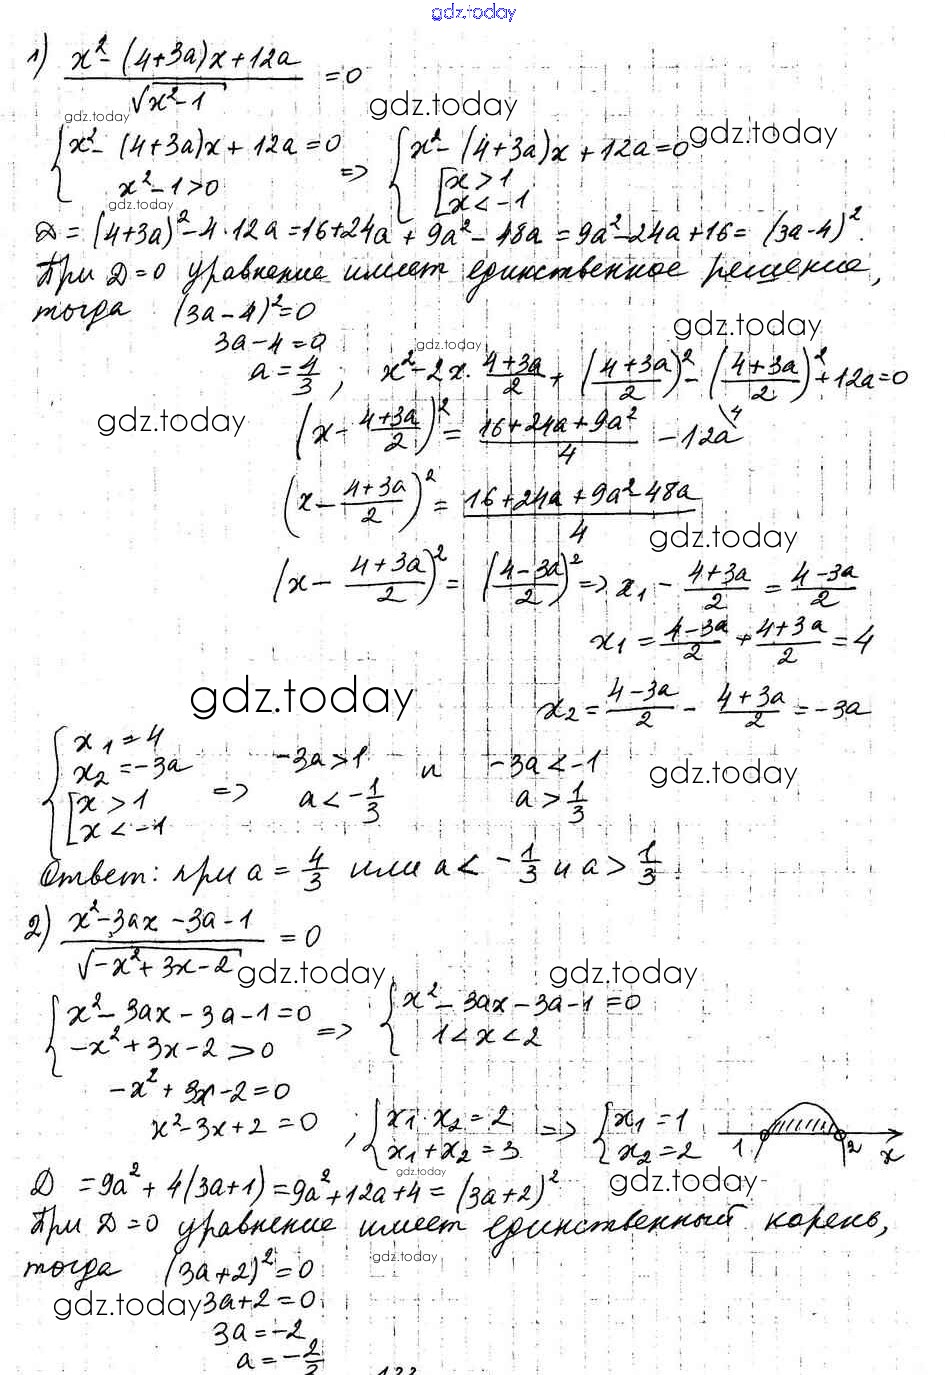 gdz.today
1) (x² - (4+3a)x + 12a) / √(x²-1) = 0
gdz.today
gdz.today
gdz.today
{ x² - (4+3a)x + 12a = 0 ; x² - 1 > 0 => { x² - (4+3a)x + 12a = 0 ; [ x > 1 ; x < -1
gdz.today
D = (4+3a)² - 4·12a = 16 + 24a + 9a² - 48a = 9a² - 24a + 16 = (3a-4)².
При D = 0 уравнение имеет единственное решение,
тогда (3a-4)² = 0
gdz.today
3a - 4 = 0
gdz.today
a = 4/3 ; x² - 2x · (4+3a)/2 + ((4+3a)/2)² - ((4+3a)/2)² + 12a = 0
gdz.today
(x - (4+3a)/2)² = (16+24a+9a²)/4 - 12a\4
(x - (4+3a)/2)² = (16+24a+9a²-48a)/4
gdz.today
(x - (4+3a)/2)² = ((4-3a)/2)² => x₁ - (4+3a)/2 = (4-3a)/2
x₁ = (4-3a)/2 + (4+3a)/2 = 4
gdz.today
x₂ = (4-3a)/2 - (4+3a)/2 = -3a
{ x₁ = 4 ; x₂ = -3a ; [ x > 1 ; x < -1 => -3a > 1 и -3a < -1
gdz.today
a < -1/3 a > 1/3
Ответ: при a = 4/3 или a < -1/3 и a > 1/3.
2) (x² - 3ax - 3a - 1) / √(-x² + 3x - 2) = 0
gdz.today
gdz.today
{ x² - 3ax - 3a - 1 = 0 ; -x² + 3x - 2 > 0 => { x² - 3ax - 3a - 1 = 0 ; 1 < x < 2
-x² + 3x - 2 = 0
x² - 3x + 2 = 0 ; { x₁·x₂ = 2 ; x₁ + x₂ = 3 => { x₁ = 1 ; x₂ = 2
1 2 x
gdz.today
gdz.today
D = 9a² + 4(3a+1) = 9a² + 12a + 4 = (3a+2)²
При D = 0 уравнение имеет единственный корень,
тогда (3a+2)² = 0
gdz.today
gdz.today
3a + 2 = 0
3a = -2
a = -2/3